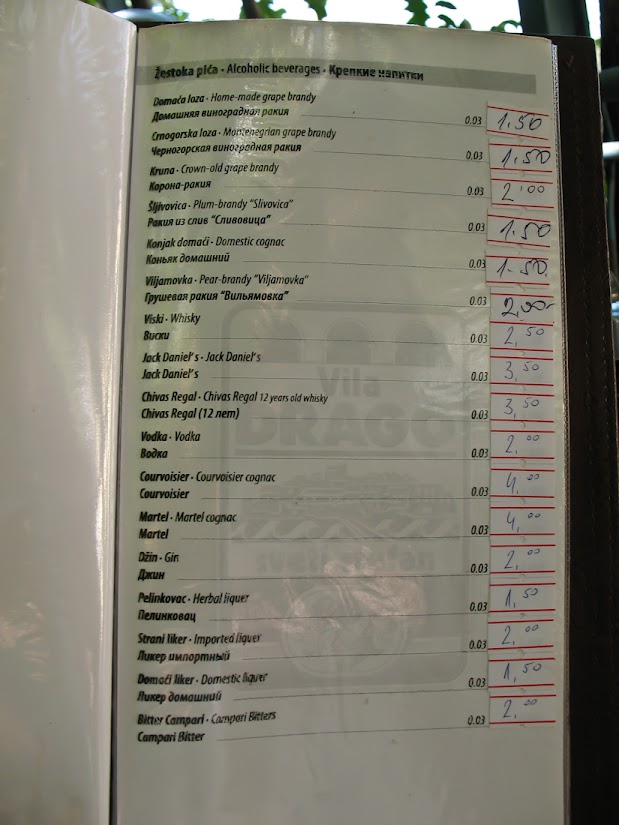 Žestoka pića · Alcoholic beverages · Крепкие напитки
Domaća loza · Home-made grape brandy
Домашняя виноградная ракия 0.03 1.50
Crnogorska loza · Montenegrian grape brandy
Черногорская виноградная ракия 0.03 1.50
Kruna · Crown-old grape brandy
Корона-ракия 0.03 2.00
Šljivovica · Plum-brandy "Slivovica"
Ракия из слив "Сливовица" 0.03 1.50
Konjak domaći · Domestic cognac
Коньяк домашний 0.03 1.50
Viljamovka · Pear-brandy "Viljamovka"
Грушевая ракия "Вильямовка" 0.03 2,00
Viski · Whisky
Виски 0.03 2,50
Jack Daniel's · Jack Daniel's
Jack Daniel's 0.03 3,50
Chivas Regal · Chivas Regal 12 years old whisky
Chivas Regal (12 лет) 0.03 3,50
Vodka · Vodka
Водка 0.03 2,00
Courvoisier · Courvoisier cognac
Courvoisier 0.03 4,00
Martel · Martel cognac
Martel 0.03 4,00
Džin · Gin
Джин 0.03 2,00
Pelinkovac · Herbal liquer
Пелинковац 0.03 1,50
Strani liker · Imported liquer
Ликер импортный 0.03 2,00
Domaći liker · Domestic liquer
Ликер домашний 0.03 1,50
Bitter Campari · Campari Bitters
Campari Bitter 0.03 2,00
Vila
DRAGO
sveti stefan